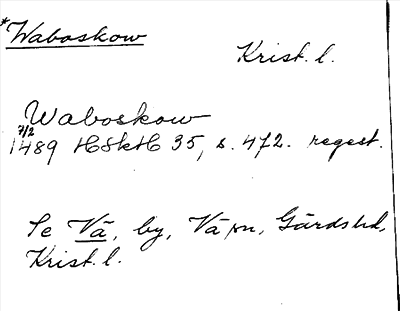 *Waboskow
Krist. l.
Waboskow
7/2
1489 HSkH 35, s. 472. regest.
Se Vä, by, Vä sn, Gärds hd,
Krist. l.